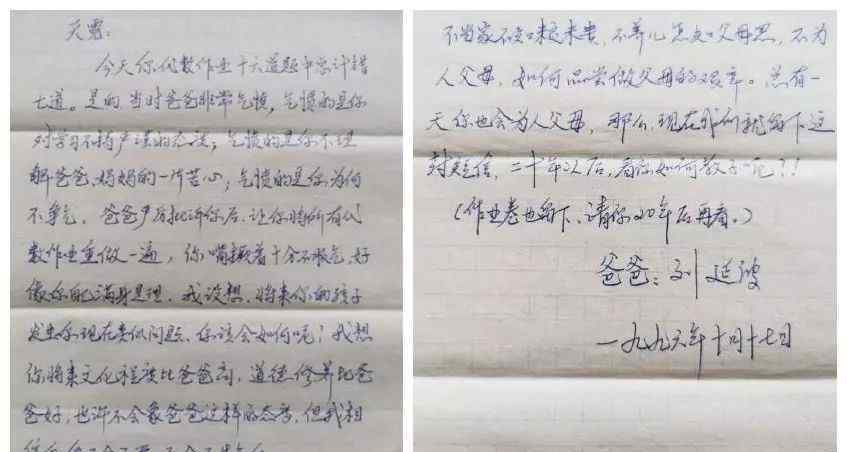 天思:
今天你代数作业十六道题中总计错
七道。是的,当时爸爸非常气愤,气愤的是你
对学习不持严谨的态度;气愤的是你不理
解爸爸、妈妈的一片苦心;气愤的是你为何
不争气。爸爸严厉批评你后,让你将所有代
数作业重做一遍,你嘴撅着十分不服气,好
像你的满身是理。我设想,将来你的孩子
发生你现在类似问题,你该会如何呢?我想
你将来文化程度比爸爸高,道德修养比爸
爸好,也许不会象爸爸这样的态度,但我相
不当家不知柴米贵,不养儿怎知父母恩,不为
人父母,如何品尝做父母的艰辛。总有一
天你也会为人父母,那么,现在我们就留下这
封短信,二十年以后,看你如何教子呢?!
(作业卷也留下,请你20年后再看。)
爸爸:刘延波
一九九六年十月十七日